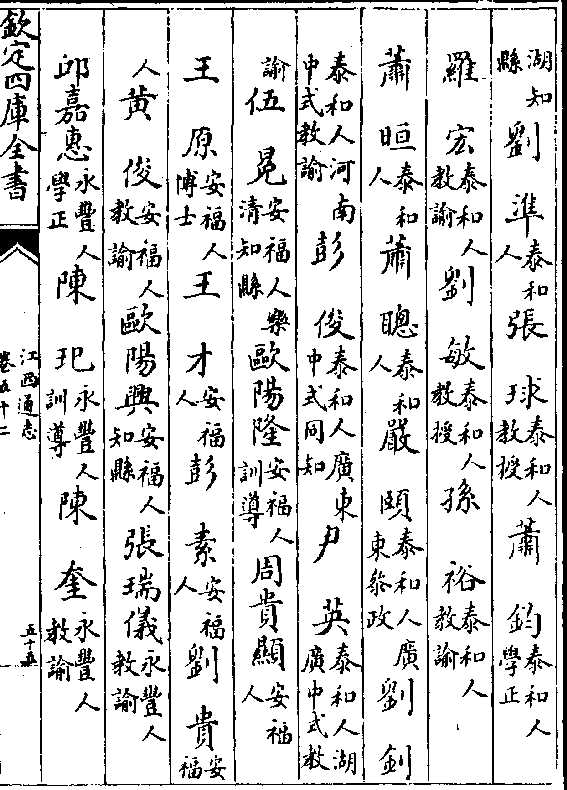 湖知縣劉準泰和人張球泰和人教授蕭鈞泰和人學正
羅宏泰和人教諭劉敏泰和人教授孫裕泰和人教諭
蕭晅泰和人蕭聰泰和人嚴頤泰和人廣東叅政劉釗
泰和人河南中式教諭彭俊泰和人廣東中式同知尹英泰和人湖廣中式教
諭伍晃安福人樂清知縣歐陽隆安福人訓導周貴顯安福人
王原安福人博士王才安福人彭素安福人劉貴安福
人黄俊安福人教諭歐陽興安福人知縣張瑞儀永豐人教諭
邱嘉惠永豐人學正陳玘永豐人訓導陳奎永豐人教諭
欽定四庫全書
江西通志
卷五十二
五十五